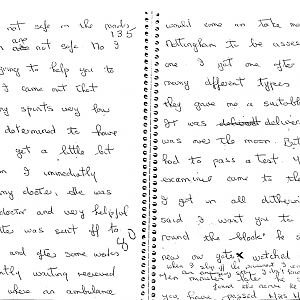 not safe in the roads
135
are not safe No I
going to help you to
I came out that
my spirits very low
determined to have
get a little bit
I immediatly
my doctor, she was
doctor and very helpful
was sent off to
40
and after some weeks
writing recieved
where an ambulance
would come an take me
Nottingham to be asses
one I got one after
many different types
they gave me a suitable
It was delivered
was over the moon. But
had to pass a test. M
examiner came to the
I got in all
said I want you to
round the block &
now on gate X watched
when I
found the
you have passed